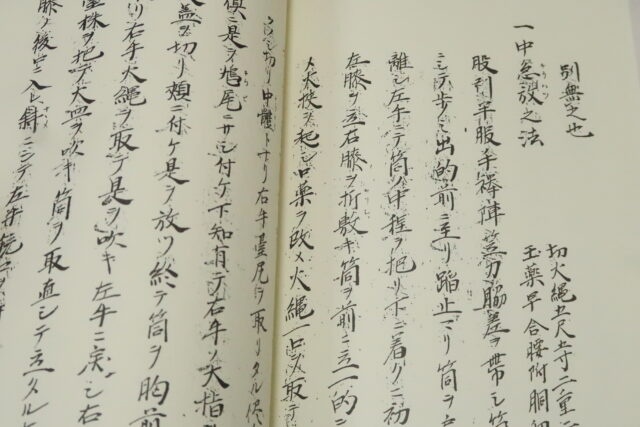 別無之也
一中怠設之法
切火縄五尺
玉薬早合腰附胴
股引半服手襷陣笠刀脇差ヲ帯シ
ミシテ歩ミ出的前ニ至リ踏止マリ筒ヲ
離シ左手ニテ筒ノ中程ヲ把リ下ニ着ク
左膝ヲ立右膝ヲ折敷キ筒ヲ前ニ立的ニ
火挟ヲ起シ口薬ヲ改メ火縄一口火取テ
切リ中腰トナリ右手臺尾ヲ取リタル
是ヲ鳩尾ニサシ付ケ下知有テ右手ノ大指
火蓋ヲ切リ頬ニ付ケ是ヲ放ツ終テ筒ヲ胸前
リ右手火縄ヲ取テ是ヲ吹キ左手ニ戻シ右
臺株ヲ把テ火皿ヲ吹キ筒ヲ取直シテ立タル
膝ノ後ロニ入レ斜ニシテ左手